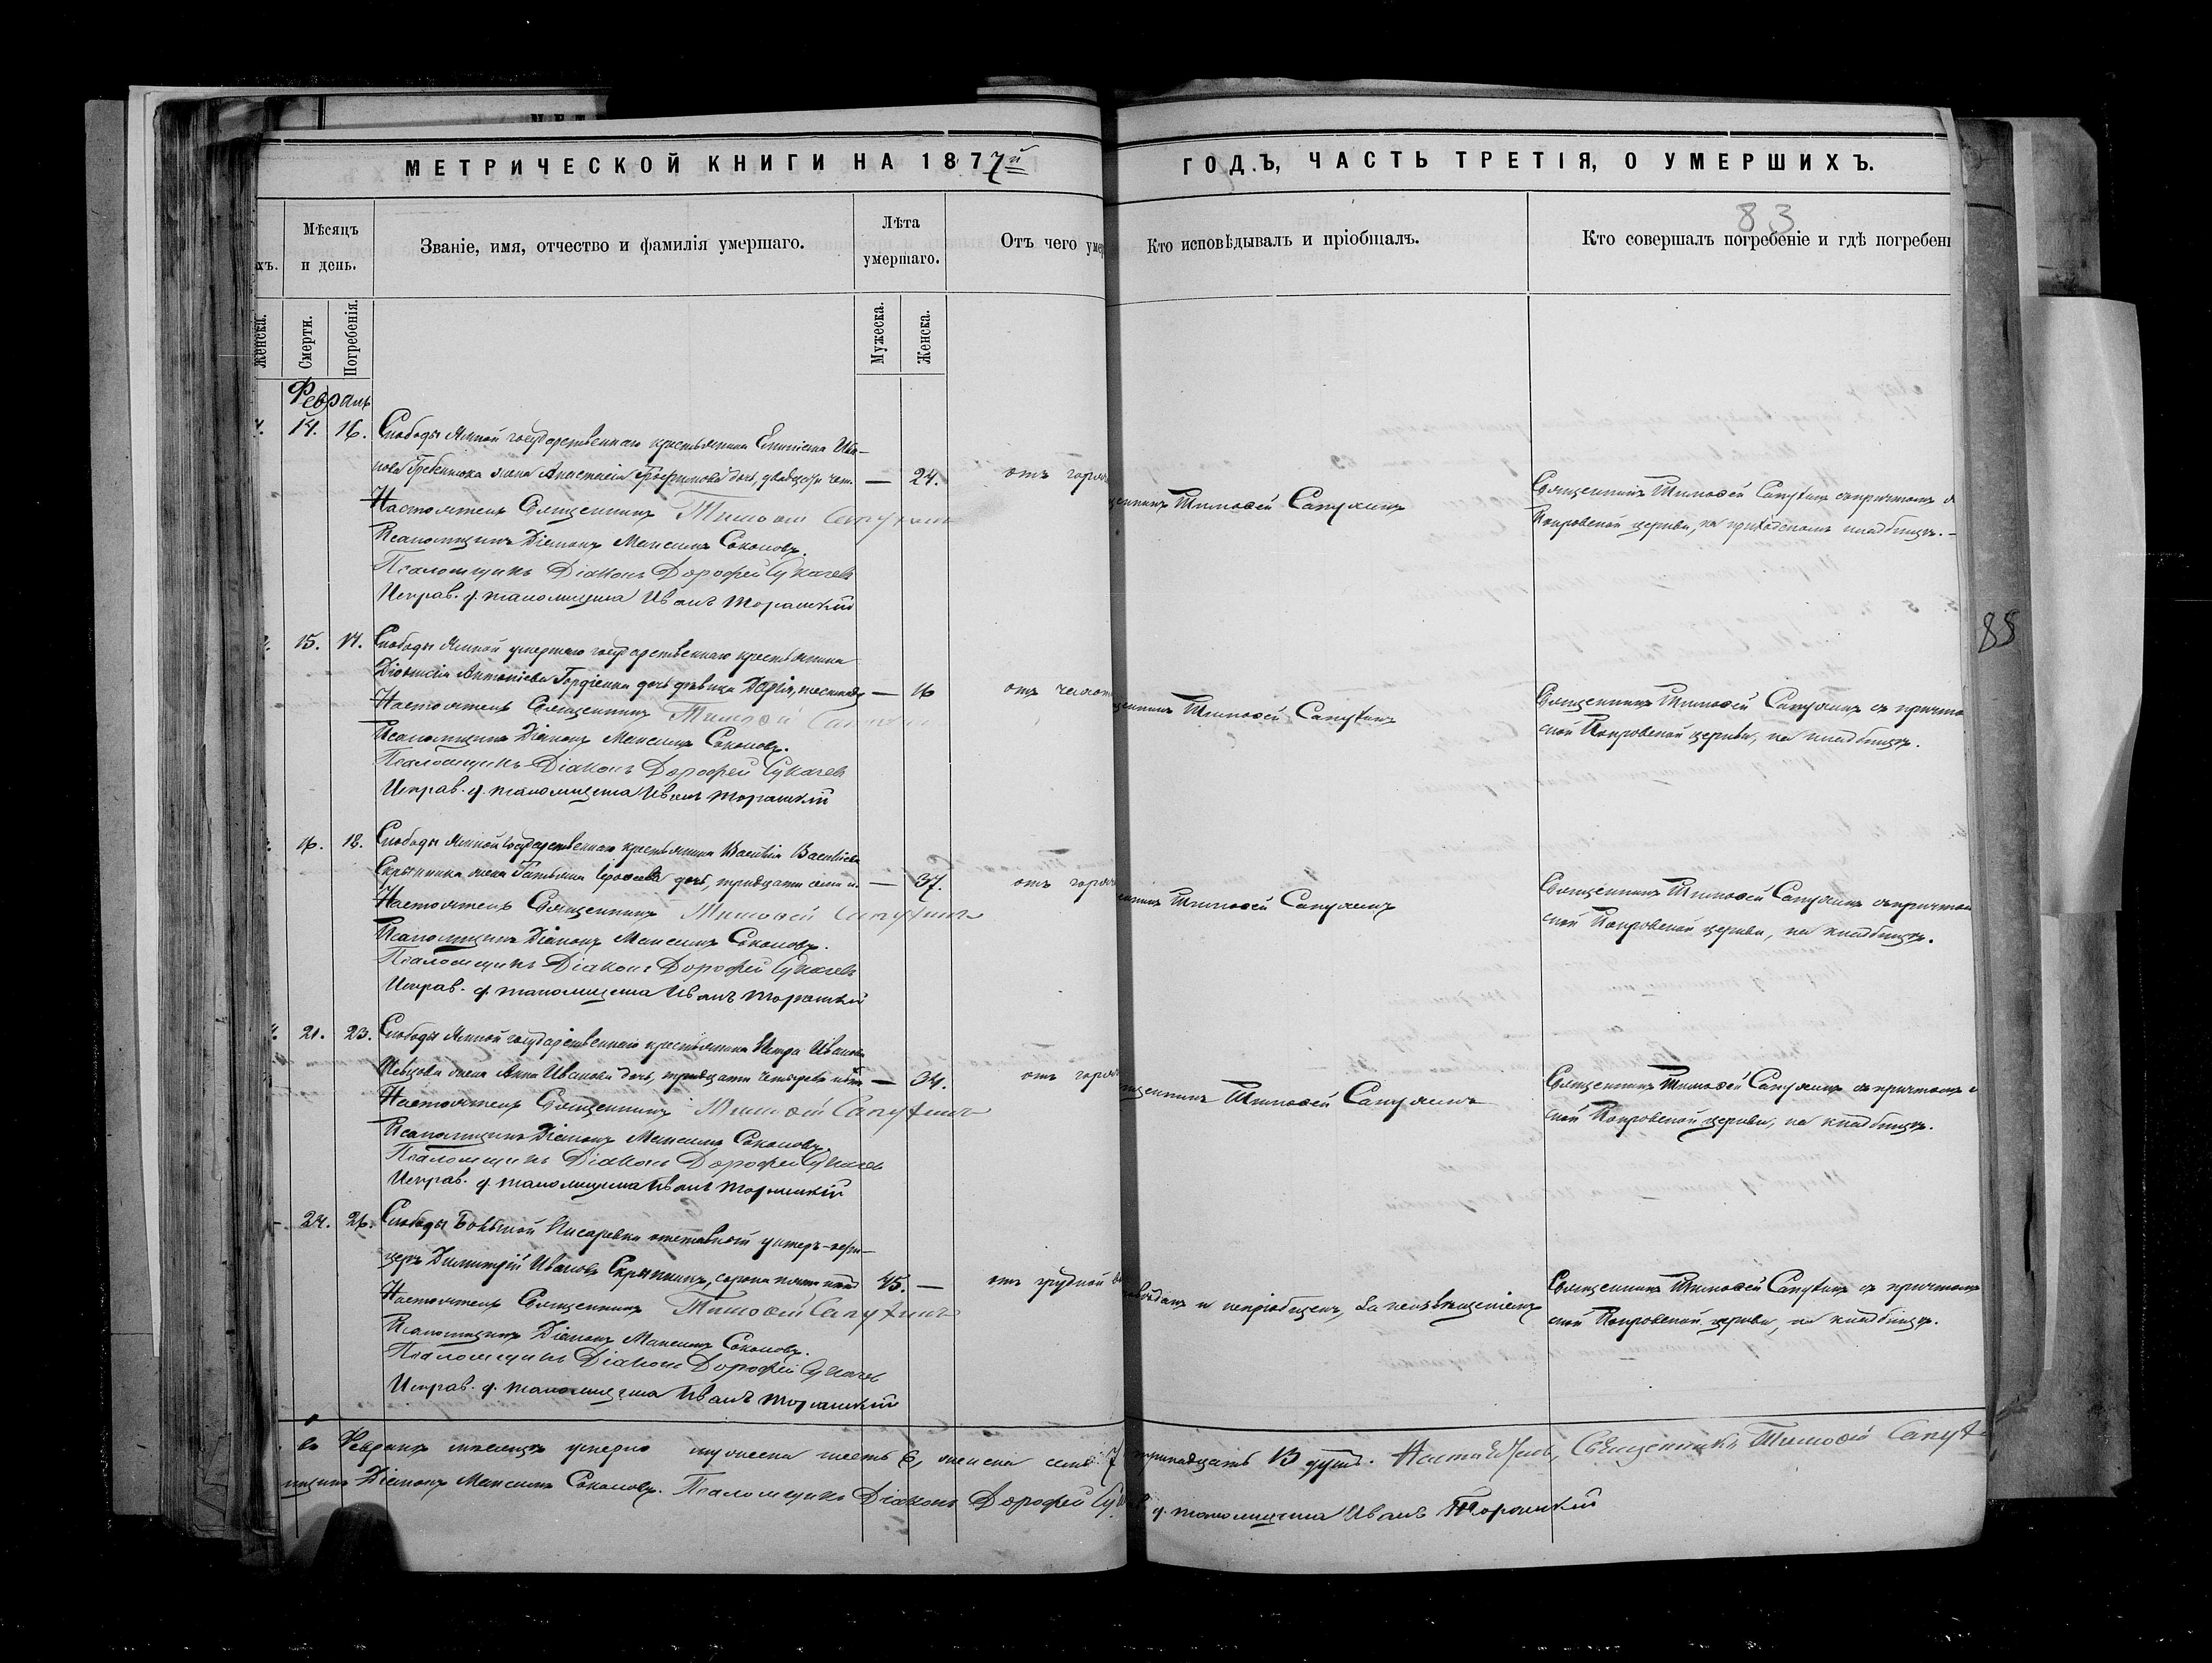 МЕТРИЧЕСКОЙ КНИГИ НА 1877й
ГОДЪ, ЧАСТЬ ТРЕТІЯ, О УМЕРШИХЪ.
83
хъ.
Мѣсяцъ и день.
Званіе, имя, отчество и фамилія умершаго.
Лѣта умершаго.
Отъ чего умер
Кто исповѣдывалъ и пріобщалъ.
Кто совершалъ погребеніе и гдѣ погребен
Женска.
Смерти.
Погребенія.
Мужеска.
Женска.
Февраль
14. 16. Слободы Ямной государственнаго крестьянина Ива-
нова жена Анастасія Трофимова дочь, двадцати чет. — 24. отъ горяч
Настоятель Священникъ Тимоѳей Сапухинъ
Псаломщикъ Діаконъ Максимъ Соколовъ.
Псаломщикъ Діаконъ Дорофей Сукачевъ
Исправ. д. псаломщика Иванъ
щенникъ Тимоѳей Сапухинъ
Священникъ Тимоѳей Сапухинъ съ причтомъ
Покровской церкви, на приходскомъ кладбищѣ.
15. 17. Слободы Ямной умершаго государственнаго крестьянина
Діонисія Антоніева Гордіенка дочь дѣвица Дарія, — 16 отъ чахот
Настоятель Священникъ Тимоѳей Сапухинъ
Псаломщикъ Діаконъ Максимъ Соколовъ.
Псаломщикъ Діаконъ Дорофей Сукачевъ
Исправ. д. псаломщика Иванъ
щенникъ Тимоѳей Сапухинъ
Священникъ Тимоѳей Сапухинъ съ причто
ской Покровской церкви, на кладбищѣ.
88
16. 18. Слободы Ямной государственнаго крестьянина Василія Васильева
жена Татьяна дочь, тридцати семи л. — 37. отъ горяч
Настоятель Священникъ Тимоѳей Сапухинъ
Псаломщикъ Діаконъ Максимъ Соколовъ.
Псаломщикъ Діаконъ Дорофей Сукачевъ
Исправ. д. псаломщика Иванъ
щенникъ Тимоѳей Сапухинъ
Священникъ Тимоѳей Сапухинъ съ причтом
ской Покровской церкви, на кладбищѣ.
21. 23. Слободы Ямной государственнаго крестьянина Петра Иванова
жена Анна Иванова дочь, тридцати четырехъ лѣтъ — 34. отъ горяч
Настоятель Священникъ Тимоѳей Сапухинъ
Псаломщикъ Діаконъ Максимъ Соколовъ.
Псаломщикъ Діаконъ Дорофей Сукачевъ
Исправ. д. псаломщика Иванъ
щенникъ Тимоѳей Сапухинъ
Священникъ Тимоѳей Сапухинъ съ причтомъ
ской Покровской церкви, на кладбищѣ.
24. 26. Слободы Большой Писаревки отставной унтеръ-офи-
церъ Димитрій Ивановъ Скрыпкинъ, сорока пяти лѣтъ 45. — отъ грудной
Настоятель Священникъ Тимоѳей Сапухинъ
Псаломщикъ Діаконъ Максимъ Соколовъ.
Псаломщикъ Діаконъ Дорофей Сукачевъ
Исправ. д. псаломщика Иванъ
и непріобщенъ, за неизвѣщеніемъ
Священникъ Тимоѳей Сапухинъ съ причтомъ
ской Покровской церкви, на кладбищѣ.
въ Февралѣ мѣсяцѣ умерло мужеска шесть 6, женска семь 7 тринадцать 13 душъ. Настоятель, Священникъ Тимоѳей Сапух
мщикъ Діаконъ Максимъ Соколовъ. Псаломщикъ Діаконъ Дорофей Сук д. псаломщика Иванъ